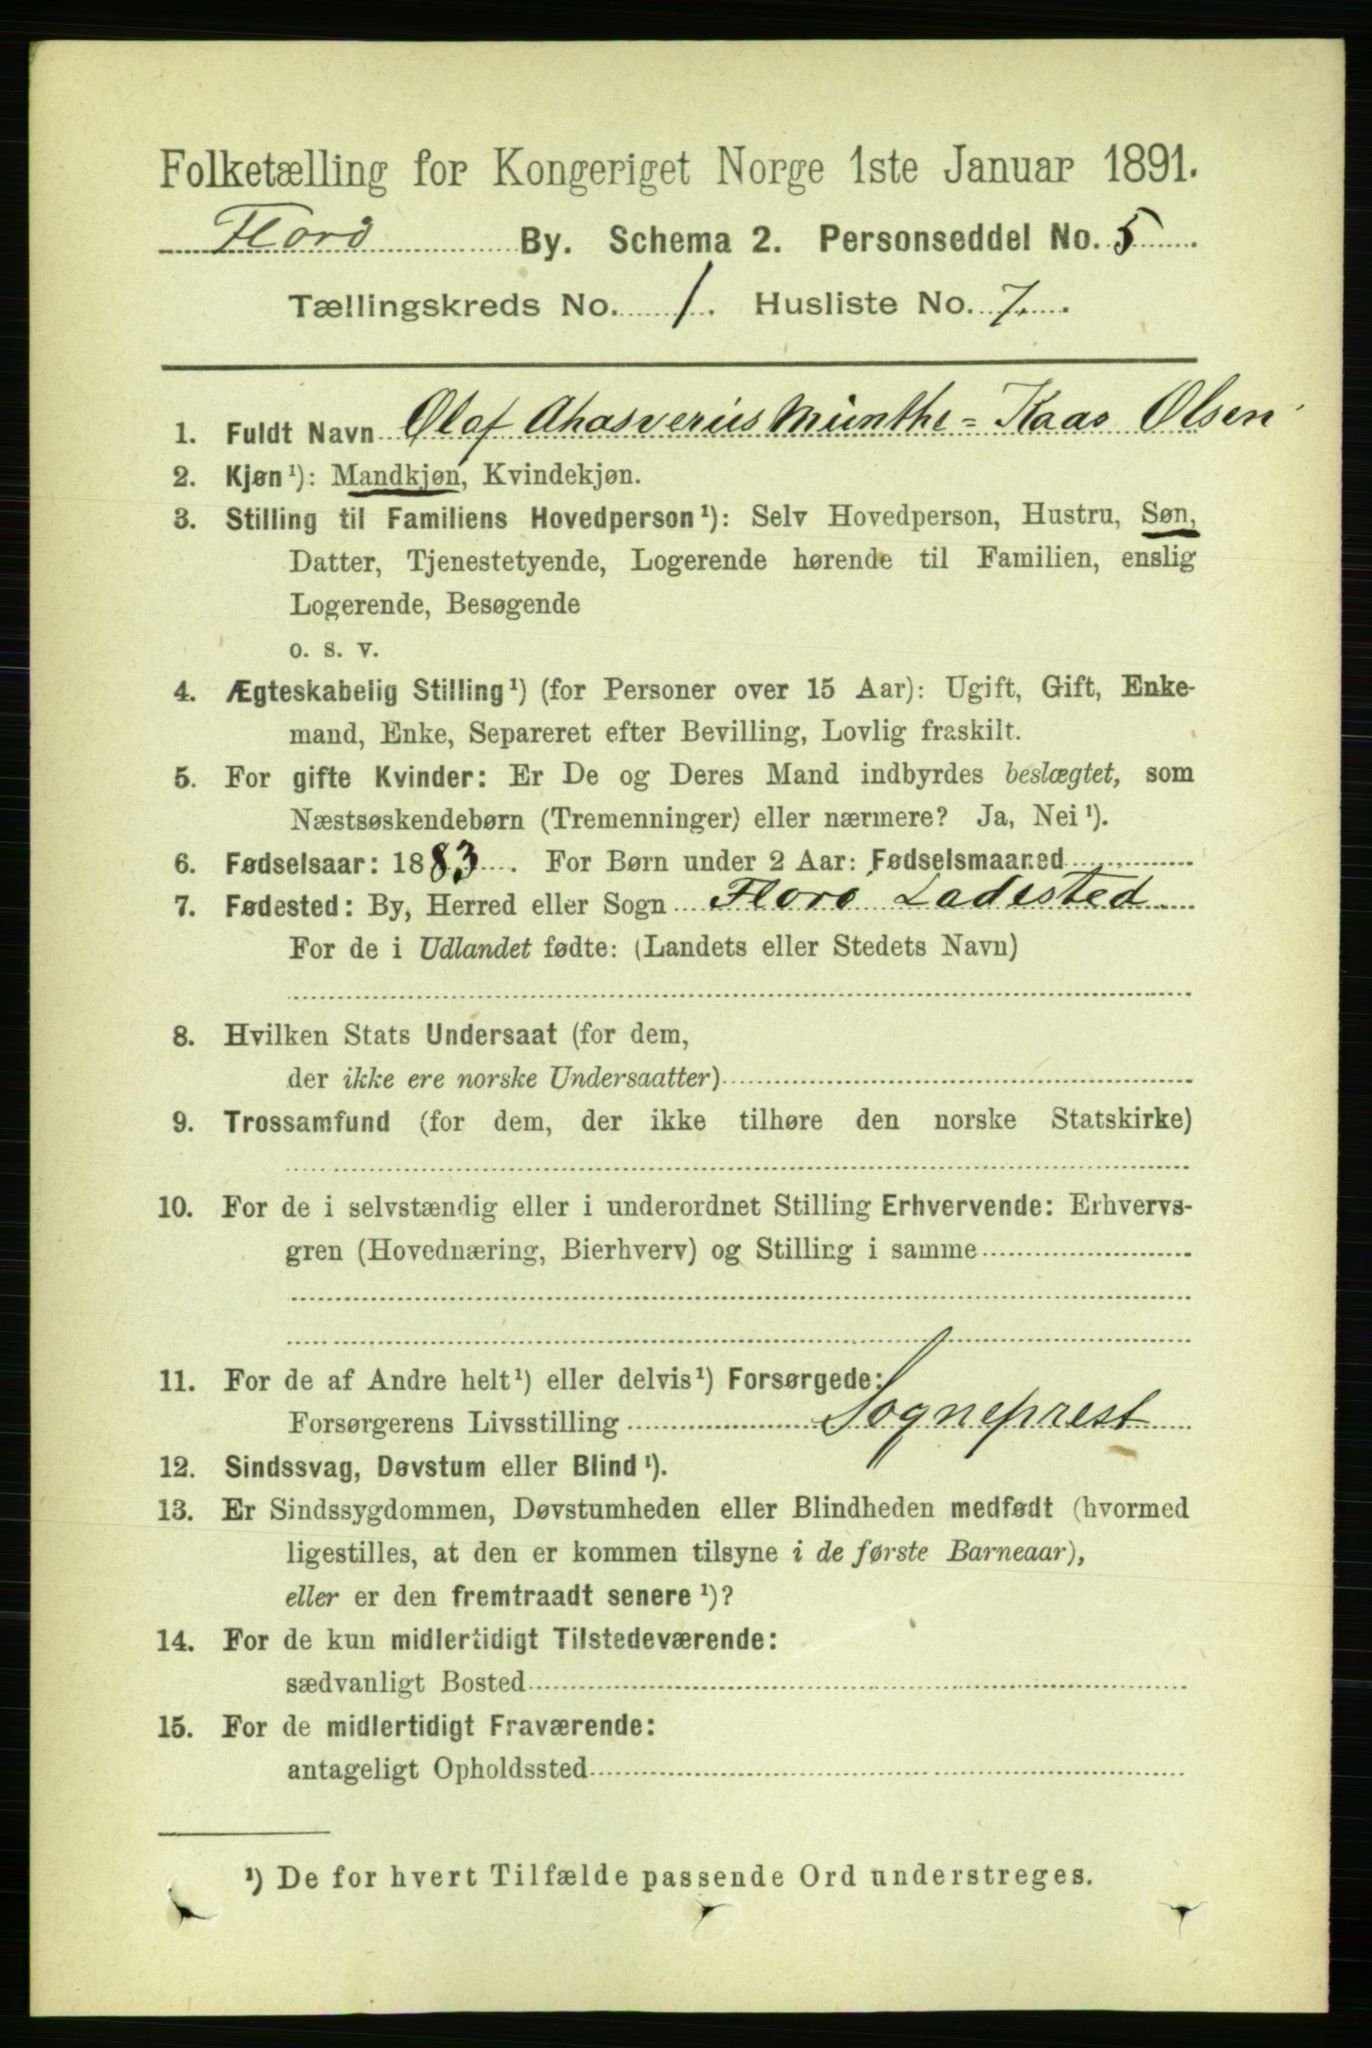 Folketælling for Kongeriget Norge 1ste Januar 1891.
Florø By. Schema 2. Personseddel No. 5
Tællingskreds No. 1. Husliste No. 7.
1. Fuldt Navn Olaf Ahasverius Munthe-Kaas Olsen
2. Kjøn¹): Mandkjøn, Kvindekjøn.
3. Stilling til Familiens Hovedperson¹): Selv Hovedperson, Hustru, Søn,
Datter, Tjenestetyende, Logerende hørende til Familien, enslig
Logerende, Besøgende
o. s. v.
4. Ægteskabelig Stilling¹) (for Personer over 15 Aar): Ugift, Gift, Enke-
mand, Enke, Separeret efter Bevilling, Lovlig fraskilt.
5. For gifte Kvinder: Er De og Deres Mand indbyrdes beslægtet, som
Næstsøskendebørn (Tremenninger) eller nærmere? Ja, Nei¹).
6. Fødselsaar: 1883. For Børn under 2 Aar: Fødselsmaaned
7. Fødested: By, Herred eller Sogn Florø Ladested
For de i Udlandet fødte: (Landets eller Stedets Navn)
8. Hvilken Stats Undersaat (for dem,
der ikke ere norske Undersaatter)
9. Trossamfund (for dem, der ikke tilhøre den norske Statskirke)
10. For de i selvstændig eller i underordnet Stilling Erhvervende: Erhvervs-
gren (Hovednæring, Bierhverv) og Stilling i samme
11. For de af Andre helt¹) eller delvis¹) Forsørgede:
Forsørgerens Livsstilling Sogneprest
12. Sindssvag, Døvstum eller Blind¹).
13. Er Sindssygdommen, Døvstumheden eller Blindheden medfødt (hvormed
ligestilles, at den er kommen tilsyne i de første Barneaar),
eller er den fremtraadt senere¹)?
14. For de kun midlertidigt Tilstedeværende:
sædvanligt Bosted
15. For de midlertidigt Fraværende:
antageligt Opholdssted
¹) De for hvert Tilfælde passende Ord understreges.